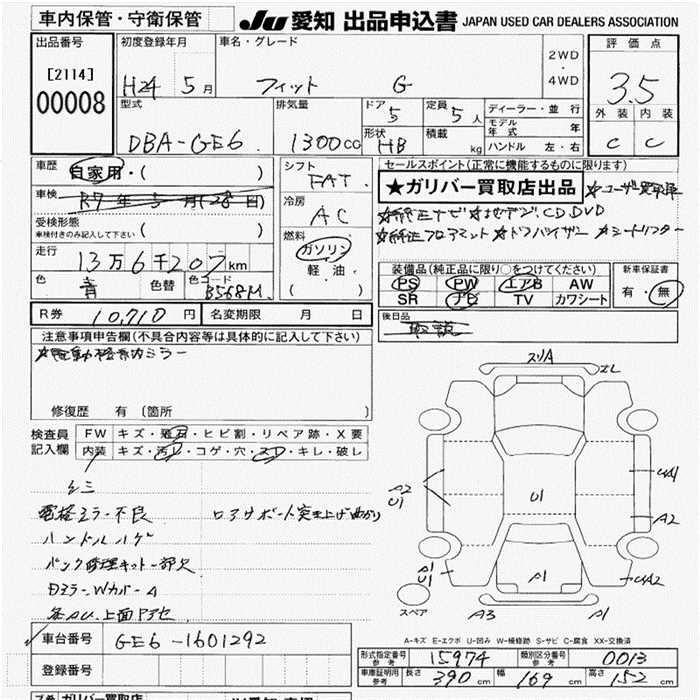 車内保管・守衛保管
JU 愛知 出品申込書 JAPAN USED CAR DEALERS ASSOCIATION
出品番号
[2114]
00008
初度登録年月
H24 5 月
車名・グレード
フィット G
2WD
・
4WD
評価点
3.5
外装 内装
C C
型式
DBA-GE6
排気量
1300cc
ドア 5
形状 HB
定員 5 人
積載 kg
ディーラー・並行
モデル年式 年
ハンドル 左・右
車歴
自家用・( )
車検
R7 年 5 月(28 日)
受検形態
車検付きのみ記入して下さい ( )
走行
13万6千207 km
色 青 色替 色コード B568M
シフト
FAT
冷房
AC
燃料
ガソリン
軽油・
( )
セールスポイント(正常に機能するものに限ります)
★ガリバー買取店出品 ★ユーザー買取車
★純正ナビ ★地デジ、CD、DVD
★純正フロアマット ★ドアバイザー ★シートリフター
装備品(純正品に限り○をつけてください)
PS PW エアB AW
SR ナビ TV カワシート
新車保証書
有・無
R券 10,710 円 名変期限 月 日
後日品
取説
注意事項申告欄(不具合内容等は具体的に記入して下さい)
★電動格納ミラー
修復歴 有〔箇所 〕
検査員記入欄
FW キズ・飛石・ヒビ割・リペア跡・X要
内装 キズ・汚レ・コゲ・穴・スレ・キレ・破レ
シミ
電格ミラー不良 ロアサポート突上げ曲がり
ハンドルハゲ
パンク修理キット一部欠
DミラーWカバーA
スリA
エレ
A2
U1
U1
UA1
A2
A1
U1
A1
UA2
スペア
A3
A1
A-キズ E-エクボ U-凹み W-補修跡 S-サビ C-腐食 XX-交換済
車台番号 GE6-1601292
登録番号
形式指定番号 参考 15974 類別区分番号 参考 0013
車庫証明用 参考 長さ 390 cm 幅 169 cm 高さ 152 cm
ガリバー買取店